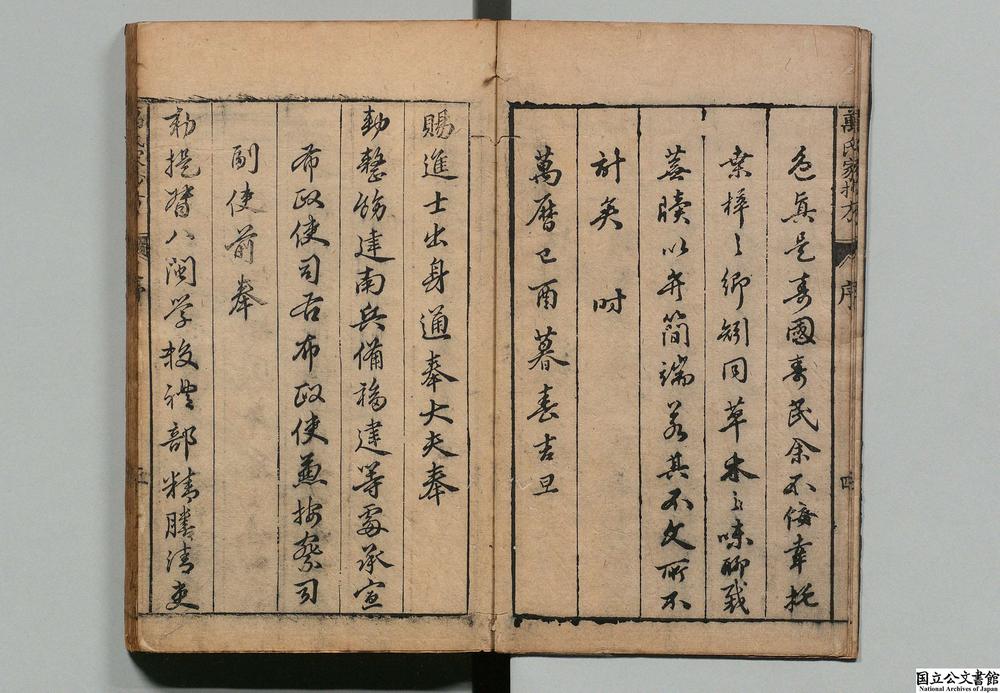 萬氏家抄方 序 四
色真是壽國壽民余不佞幸托
桑梓之鄉卽同草木之味聊裁
蕪牘以弁簡端若其不文所不
計矣時
萬曆己酉暮春吉旦
賜進士出身通奉大夫奉
勅整飭建南兵備福建等處承宣
布政使司右布政使兼按察司
副使前奉
勅提督八閩學校禮部精膳清吏
序 五
国立公文書館
National Archives of Japan